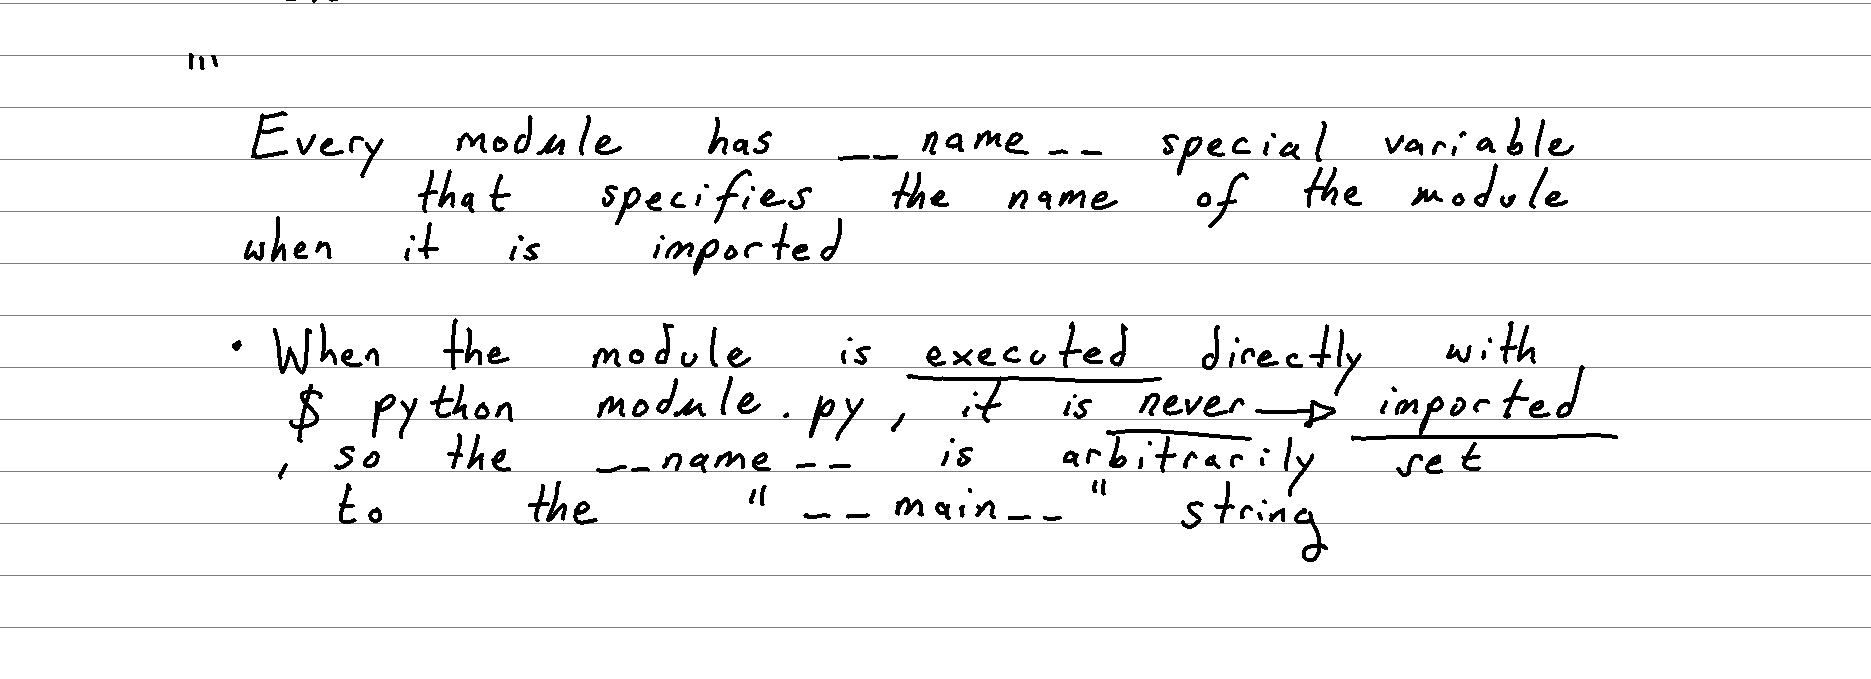 "'
Every module has __name__ special variable
that specifies the name of the module
when it is imported
• When the module is executed directly with
$ python module.py, it is never → imported
, so the __name__ is arbitrarily set
to the "__main__" string